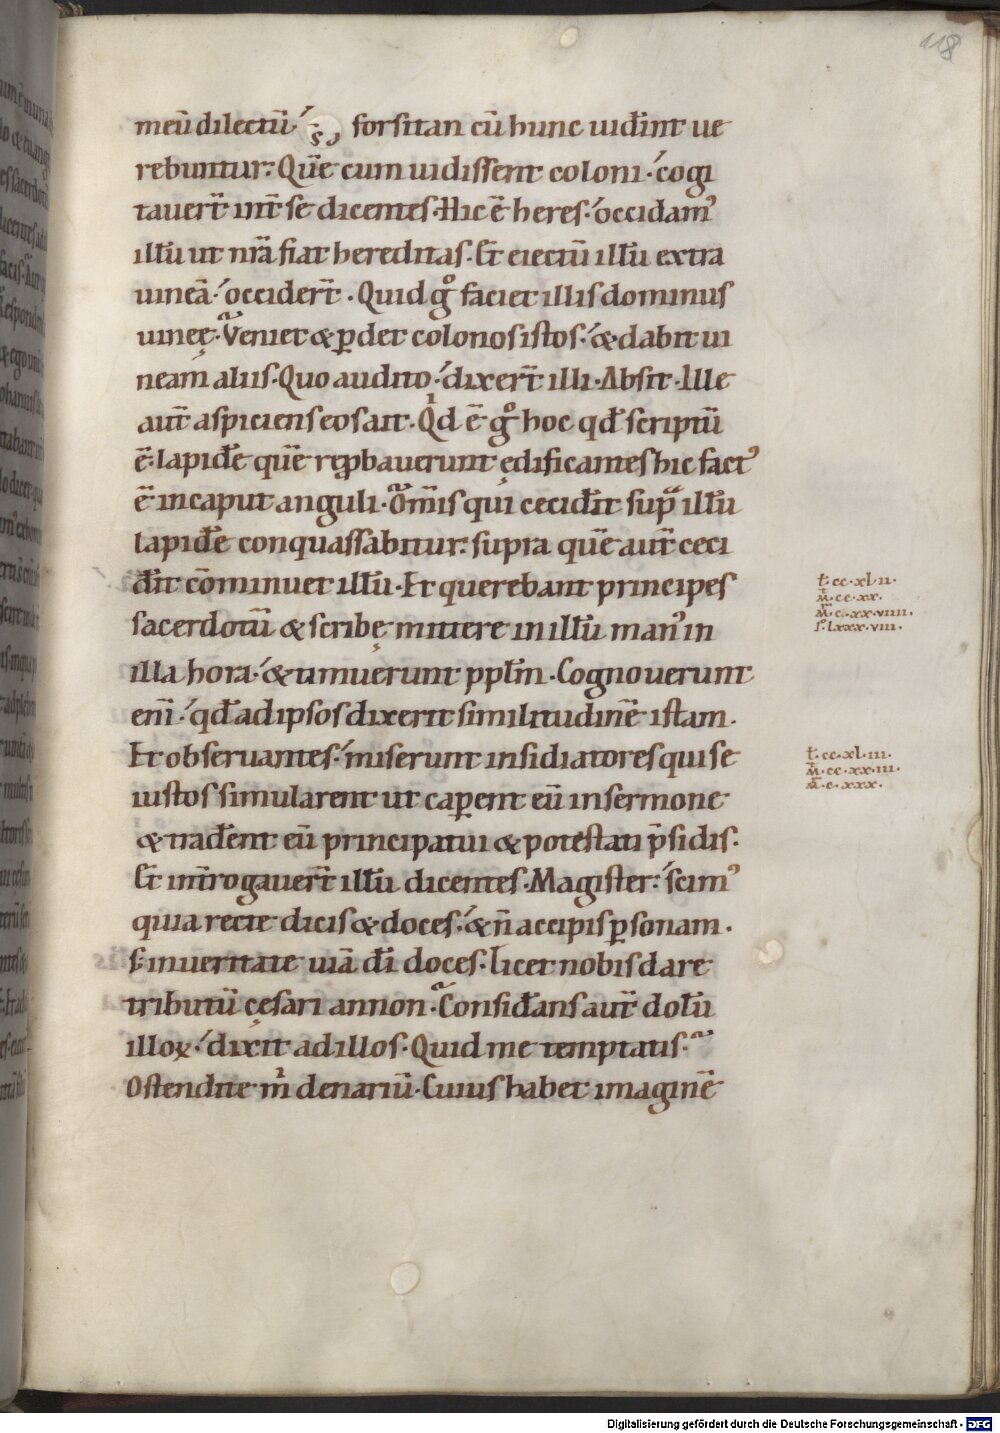 118
meū dilectū·́ s̄; forsitan cū hunc uid̄int ue
rebuntur:́ Quē cum uidissent coloni·́ cogi
tauer̄t int̄ se dicentes· Hic ē heres·́ occidam᾽
illū ut nr̄a fiat hereditas· Et eiectū illū extra
uineā·́ occider̄t· Quid gͦ faciet illis dominus
uineę· Veniet & ꝑdet colonos istos·́ & dabit ui
neam aliis· Quo audito·́ dixer̄t illi· Absit· Ille
aut̄ aspiciens eos ait· Qͥd ē gͦ hoc qđ scriptū
ē· lapidē quē reꝓbauerunt ędificantes hic fact᾽
ē in caput anguli· Om̄is qui cecid̄it sup̄ illū
lapidē conquassabitur:́ supra quē aut̄ ceci
d̄it cōminuet illū· Et querebant principes
sacerdotū & scribę mittere in illū man᾽ in
illa hora·́ & timuerunt pplm̄· Cognouerunt
enī·́ qđ ad ipsos dixerit similitudinē istam·
Et obseruantes·́ miserunt insidiatores qui se
iustos simularent ut caꝑent eū in sermone
& trad̄ent eū principatui & potestati p̄sidis·
Et int̄rogauer̄t illū dicentes· Magister:́ scim᾽
quia recte dicis & doces·́ & n̄ accipis ꝑsonam·
s; in ueritate uiā dī doces· licet nobis dare
tributū cęsari an non· Consid̄ans aut̄ dolū
illoꝝ·́ dixit ad illos· Quid me temptatis·
Ostendite m̄ denariū· Cuius habet imaginē
l̄·cc·xl·ii·
m̄·cc·xx·
m̄·c·xx·viiii·
i·lxxx·viii·
l̄·cc·xl·iii·
m̄·cc·xx·iii·
m̄·c·xxx·
Digitalisierung gefördert durch die Deutsche Forschungsgemeinschaft - DFG